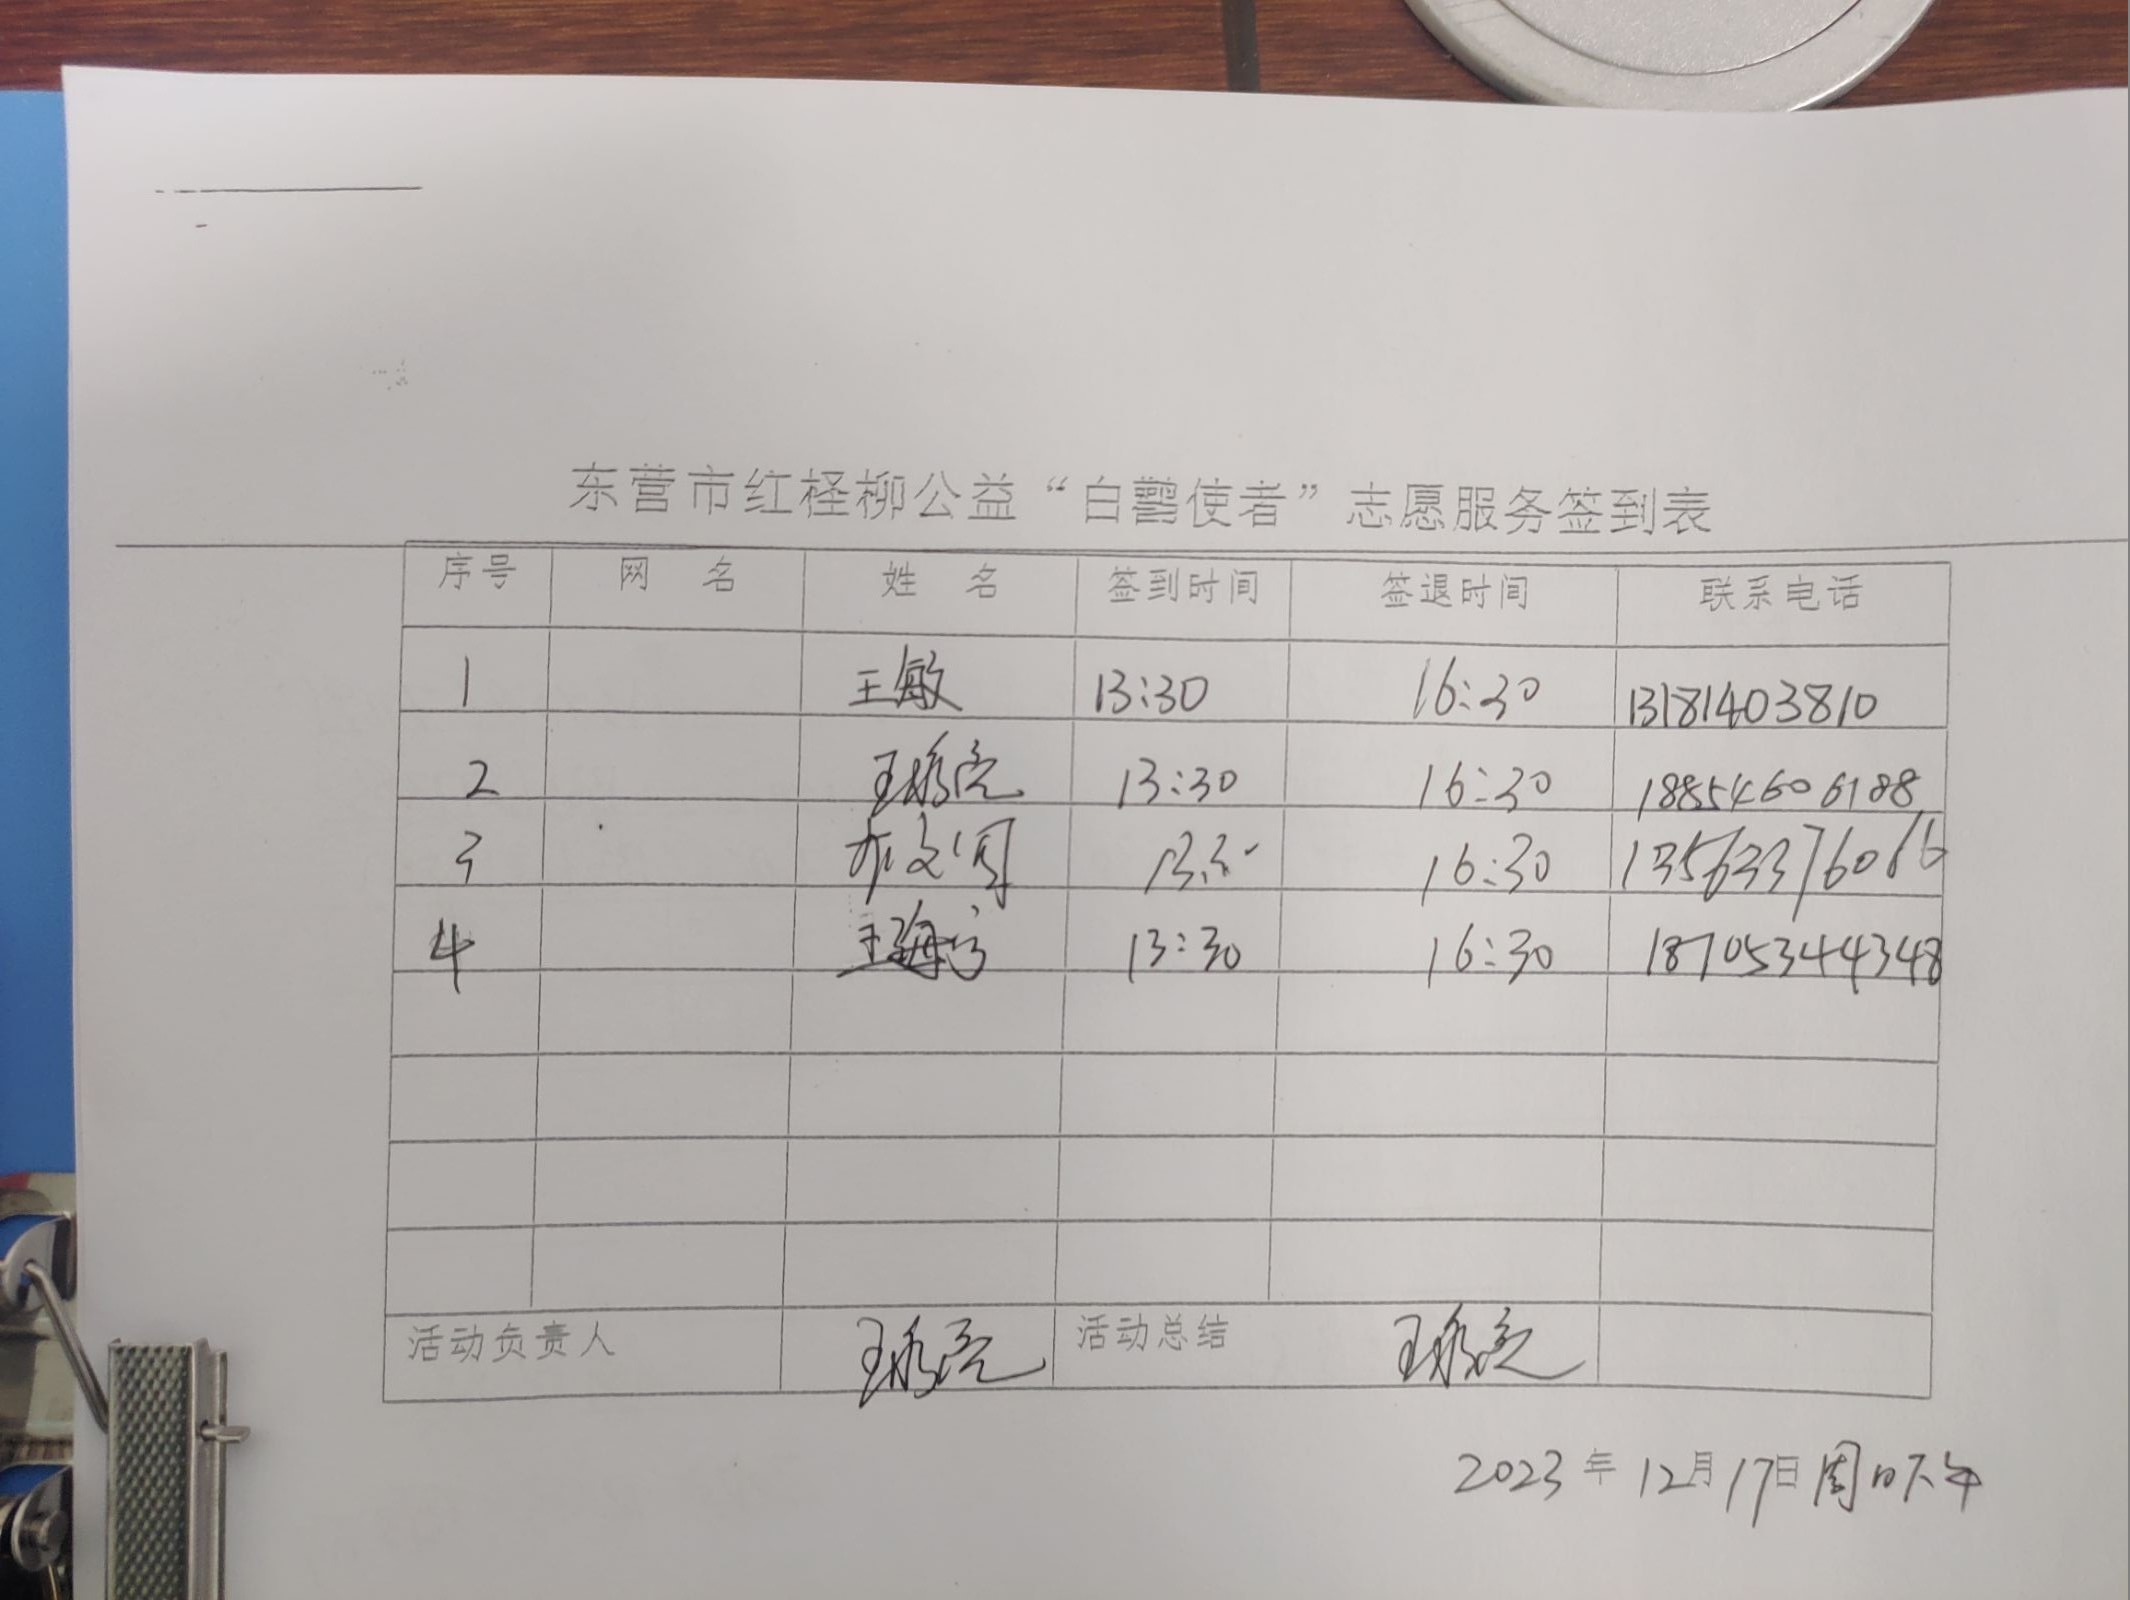 东营市红柽柳公益“白鹳使者”志愿服务签到表
序号 网 名 姓 名 签到时间 签退时间 联系电话
1 王敏 13:30 16:30 13181403810
2 13:30 16:30 18854606188
3 16:30 13563376066
4 王海 13:30 16:30 18705344348
活动负责人 活动总结
2023年12月17日周日下午